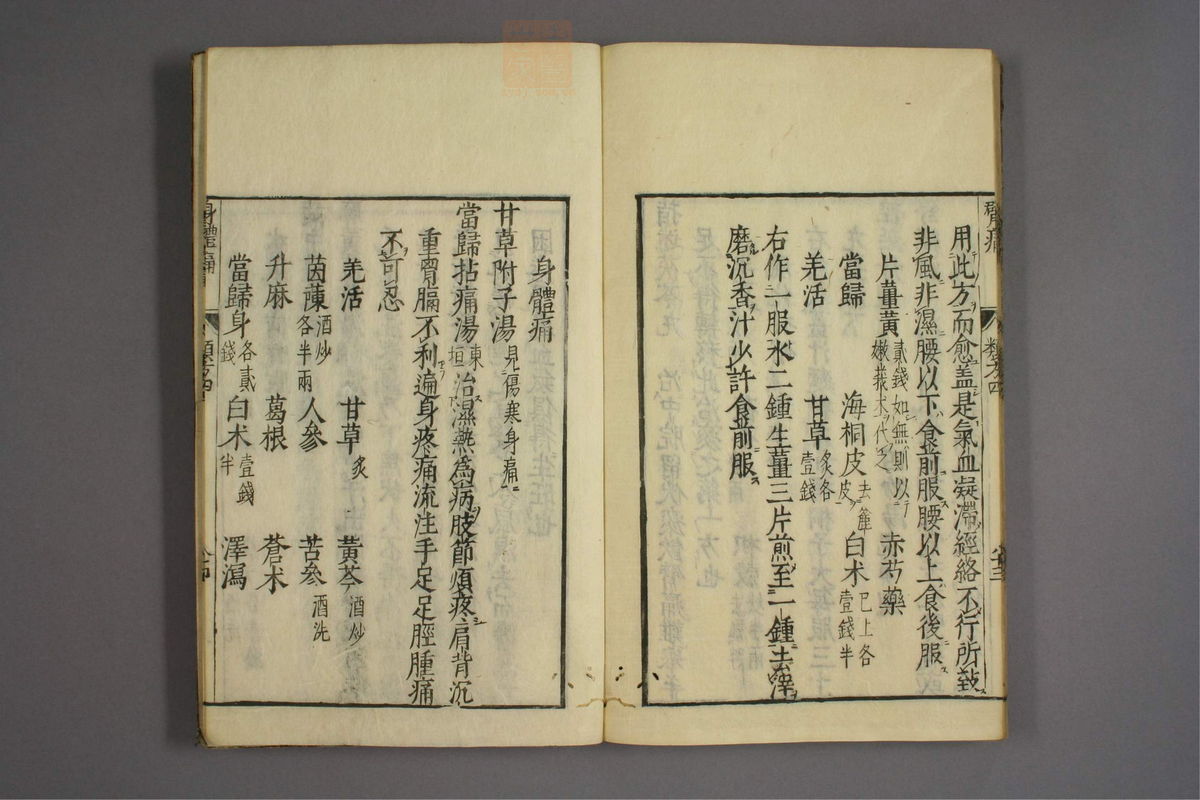 臂痛
類方四
用此方而愈盖是氣血凝滯經絡不行所致
非風非濕腰以下食前服腰以上食後服
片薑黃貳錢如無則以行嫩莪朮代之 赤芍藥
當歸 海桐皮去麄皮 白朮已上各壹錢半
羌活 甘草炙各壹錢
右作一服水二鍾生薑三片煎至一鍾去滓
磨沉香汁少許食前服
身體痛
甘草附子湯見傷寒身痛
當歸拈痛湯東垣治濕熱為病肢節煩疼肩背沉
重胷膈不利遍身疼痛流注手足足脛腫痛
不可忍
羌活 甘草炙 黃芩酒炒
茵蔯酒炒各半兩 人參 苦參酒洗
升麻 葛根 蒼朮
當歸身各貳錢 白朮壹錢半 澤瀉
身體痛
類方四